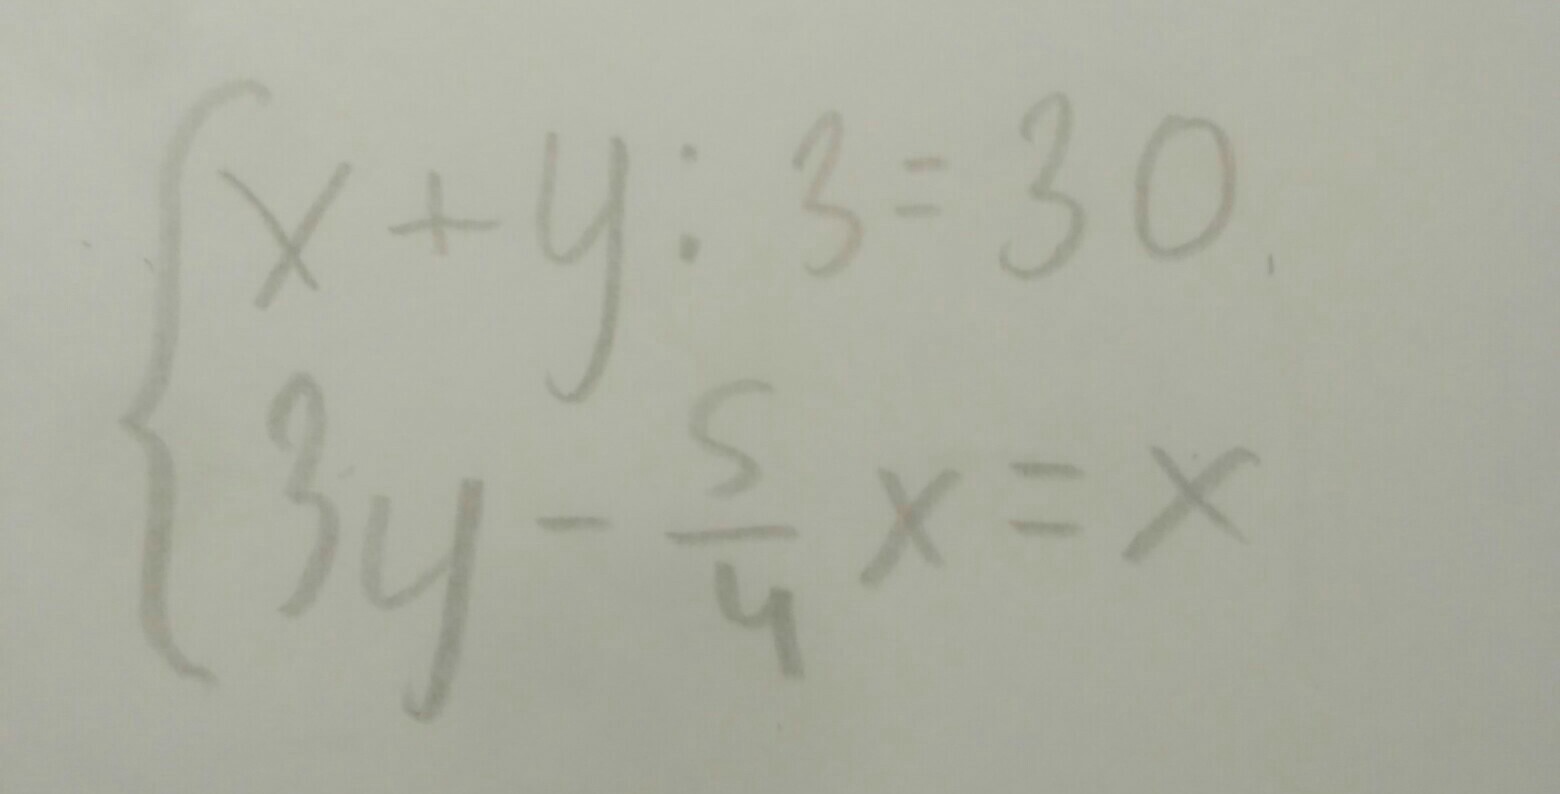 x + y : 3 = 30
3y - 5/4 x = x